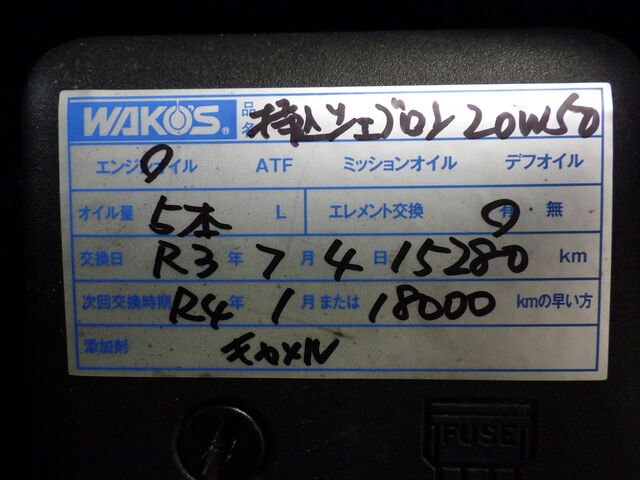 WAKO'S® 品名 持込シェブロン 20W50
エンジンオイル ATF ミッションオイル デフオイル
オイル量 5本 L エレメント交換 有・無
交換日 R3年 7月 4日 15280 km
次回交換時期 R4年 1月または 18000 kmの早い方
添加剤 モカメル
FUSE